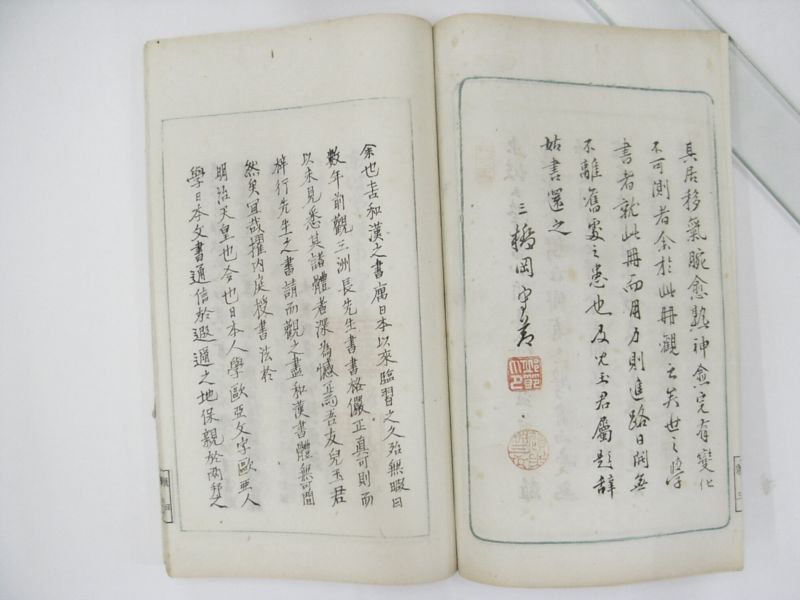 其居移氣腕愈熟神愈完有變化
不可測者余於此冊觀之矣世之學
書者就此冊而用力則進路日開無
不離舊處之患也及兒玉君屬題辞
姑書還之
三橋岡守節
余也去和漢之書寓日本以來臨習之久殆無暇日
數年前觀三洲長先生書書格儼正真可則而
以未見悉其諸體者深為憾焉吾友兒玉君
梓行先生之書請而觀之盡和漢書體無可間
然矣宜哉擢內庭授書法於
明治天皇也今也日本人學歐亞文字歐亞人
學日本文書通信於遐邇之地保親於兩邦之